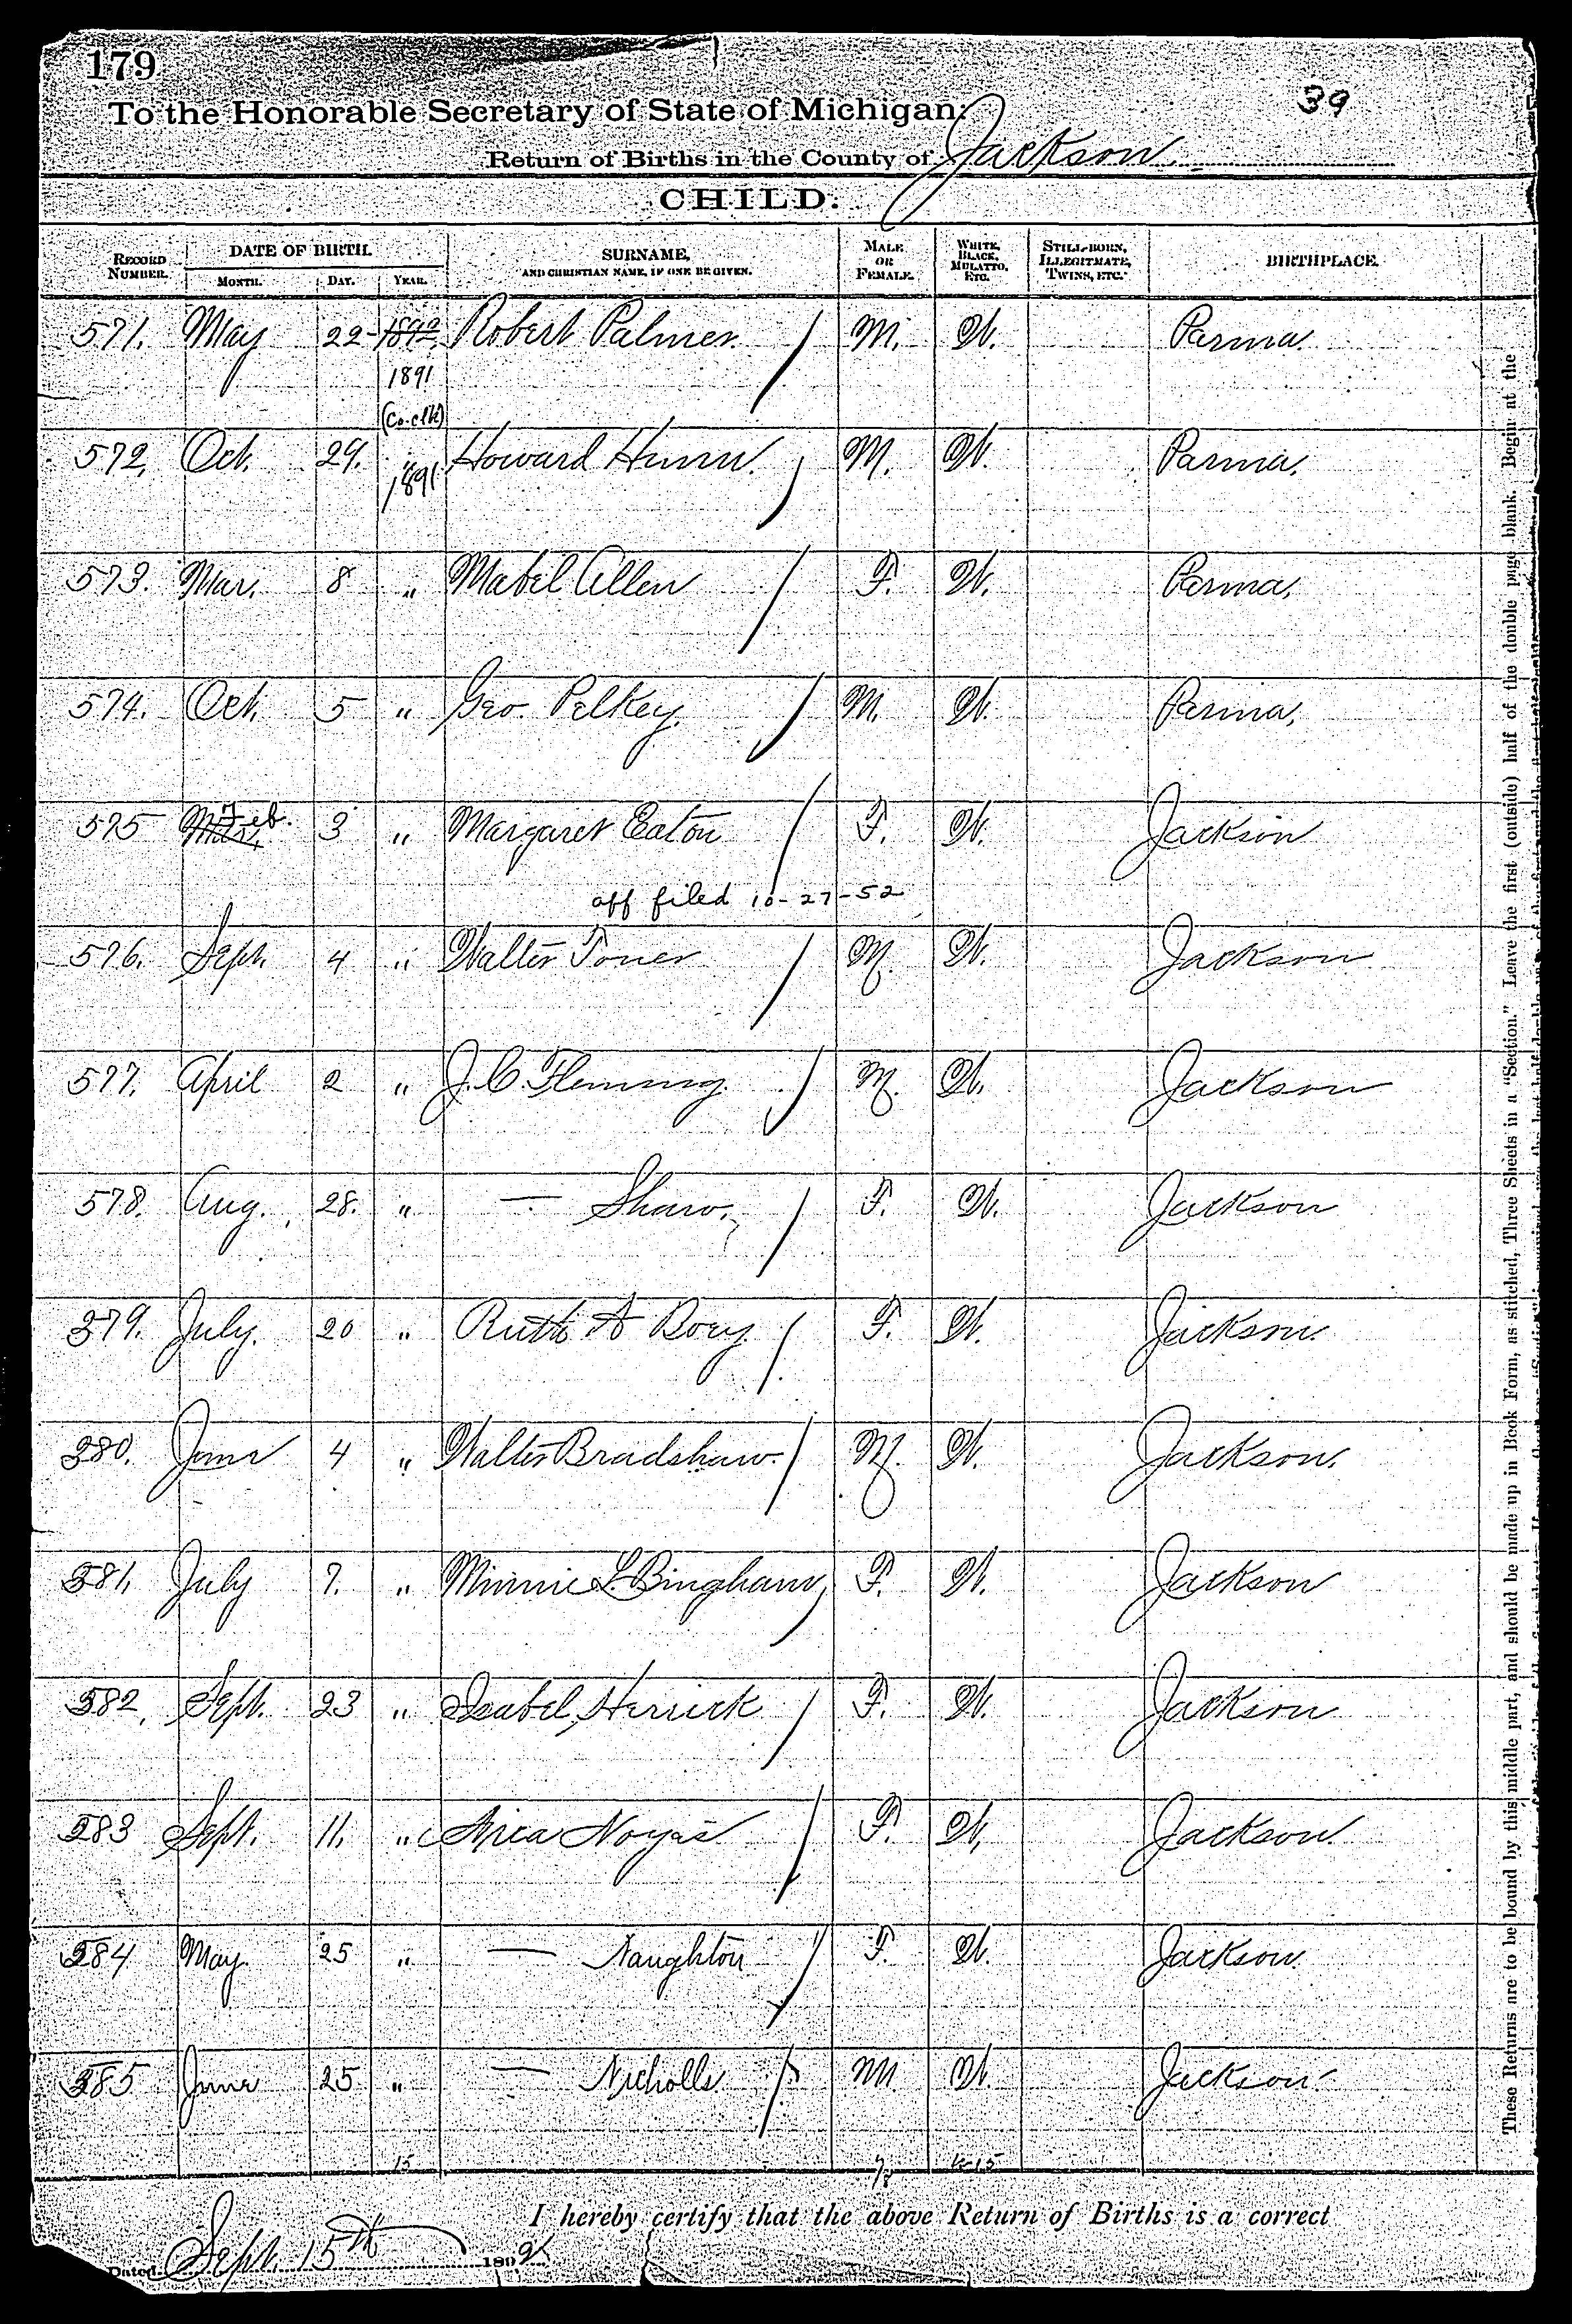 179
39
To the Honorable Secretary of State of Michigan:
Return of Births in the County of Jackson.
CHILD.
RECORD NUMBER. DATE OF BIRTH. MONTH. DAY. YEAR. SURNAME, AND CHRISTIAN NAME, IF ONE BE GIVEN. MALE OR FEMALE. WHITE, BLACK, MULATTO, ETC. STILL-BORN, ILLEGITIMATE, TWINS, ETC. BIRTHPLACE.
571. May 22 - 1892 Robert Palmer. M. W. Parma.
1891
(Co. clk)
572. Oct. 29. 1891 Howard Hunn. M. W. Parma.
573. Mar. 8 " Mabel Allen F. W. Parma.
574. Oct. 5 " Geo. Pelkey. M. W. Parma.
575 Feb. 3 " Margaret Eaton F. W. Jackson
aff filed 10-27-52
576. Sept. 4 " Walter Toner M. W. Jackson
577. April 2 " J. C. Fleming. M. W. Jackson
578. Aug. 28. " — Shaw. F. W. Jackson
579. July. 20 " Ruth A F. W. Jackson.
580. 4 " Walter Bradshaw. M. W. Jackson.
581. July 7. " Minnie L. Bingham F. W. Jackson
582. Sept. 23 " Isabel Herrick F. W. Jackson
583 Sept. 11. " Noyes F. W. Jackson.
584 May. 25 " — Naughton F. W. Jackson.
585 June 25 " — Nicholls M W. Jackson.
15 7/8 W-15
I hereby certify that the above Return of Births is a correct
Dated Sept. 15th 1892
These Returns are to be bound by this middle part, and should be made up in Book Form, as stitched, Three Sheets in a "Section." Leave the first (outside) half of the double page blank. Begin at the